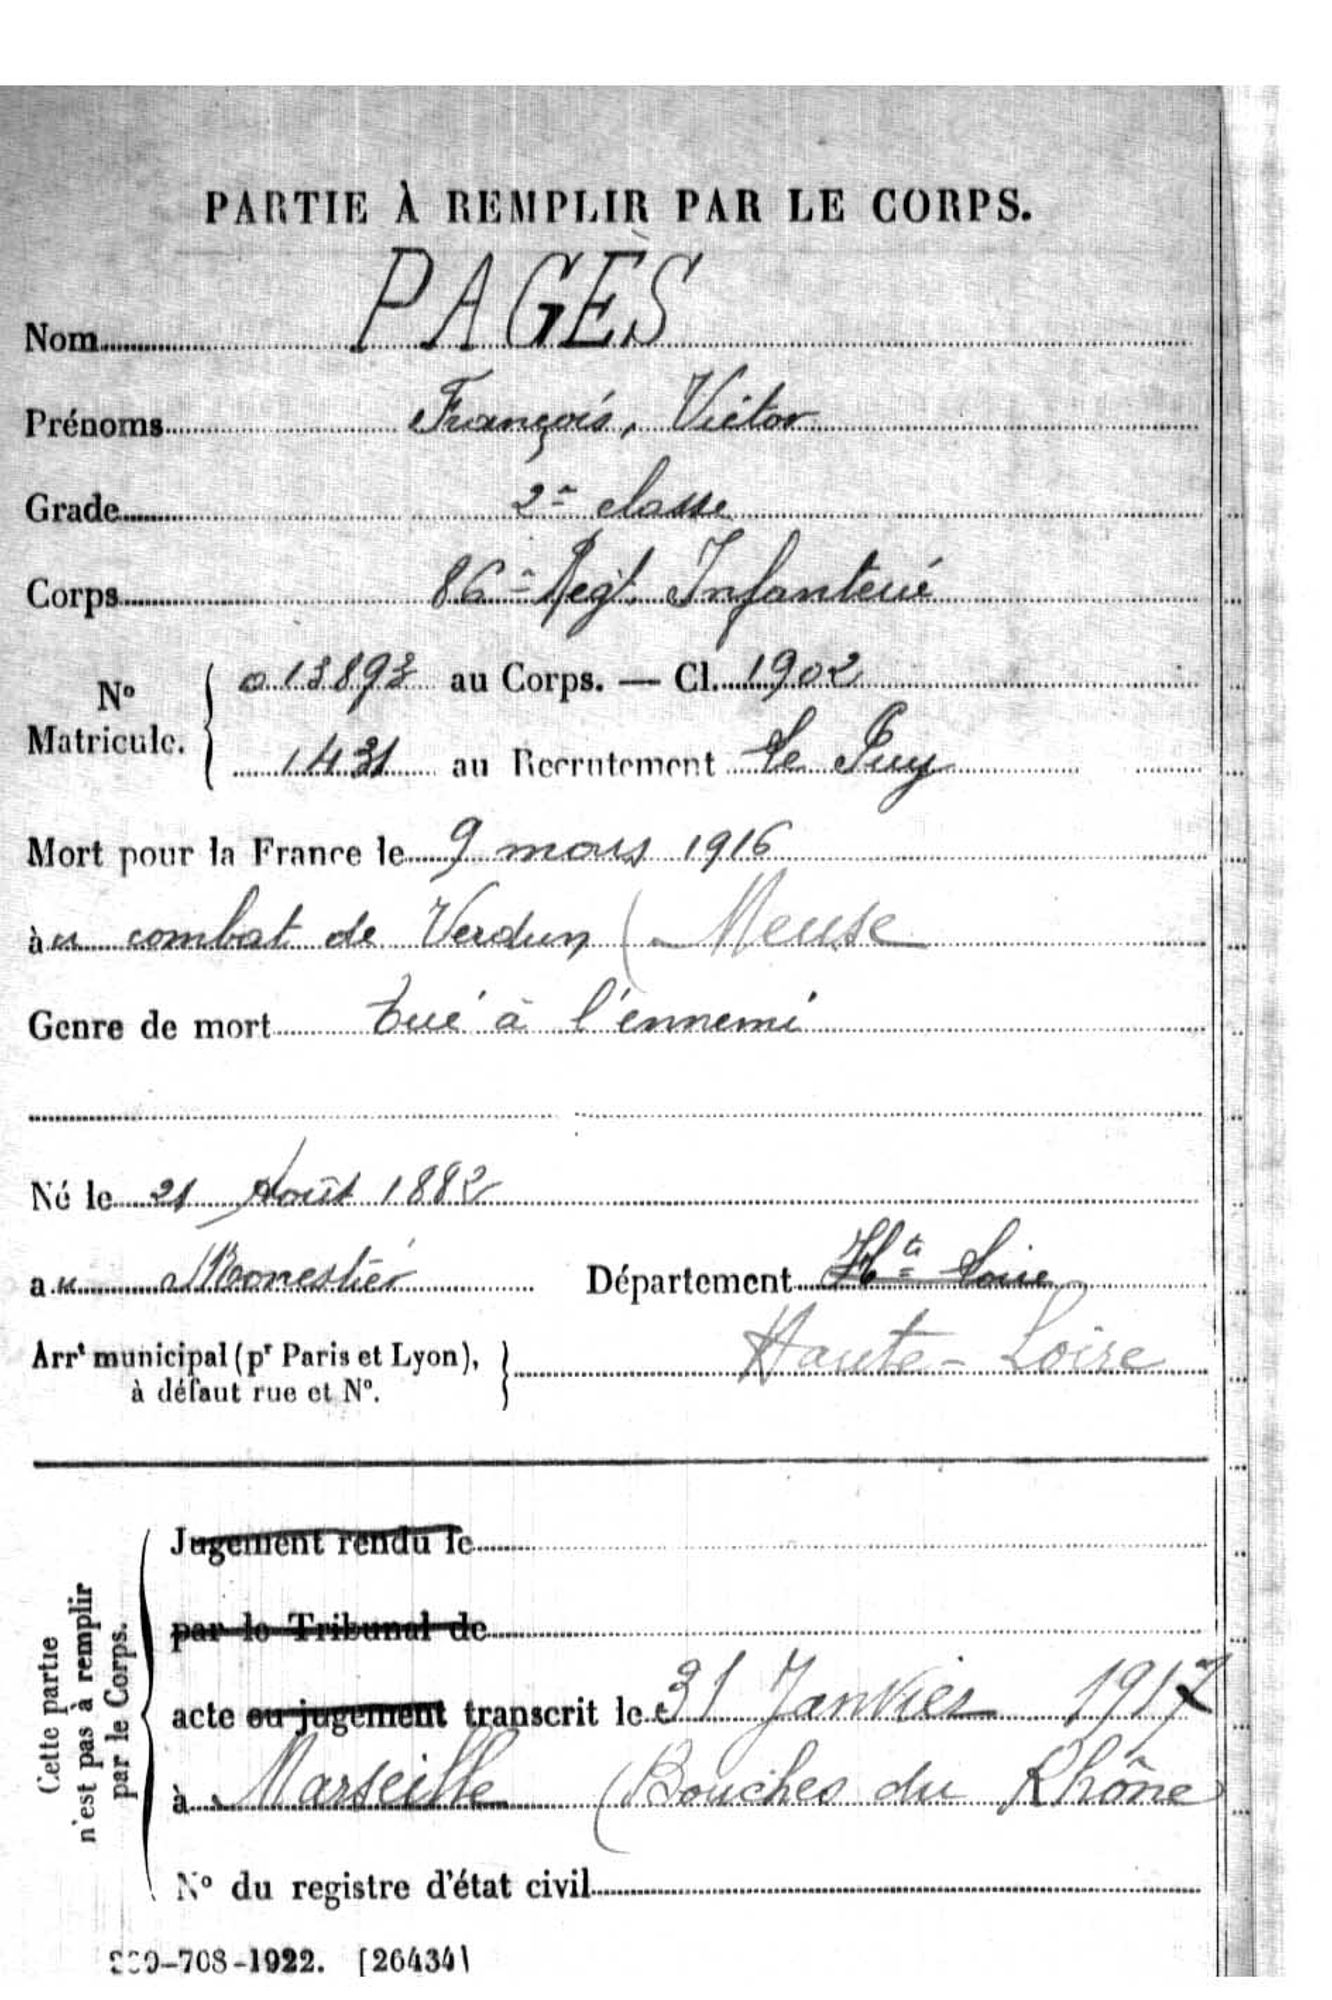 PARTIE À REMPLIR PAR LE CORPS.
Nom PAGÈS
Prénoms François, Victor
Grade 2e classe
Corps 86e Regt. Infanterie
No Matricule. { 013893 au Corps. — Cl. 1902
1431 au Recrutement Le Puy
Mort pour la France le 9 mars 1916
àu combat de Verdun ( Meuse
Genre de mort tué à l'ennemi
Né le 21 Août 1882
au Monestier Département Hte Loire
Arrt municipal (pr Paris et Lyon), à défaut rue et No. } Haute-Loire
Cette partie n'est pas à remplir par le Corps.
Jugement rendu le
par le Tribunal de
acte ou jugement transcrit le 31 Janvier 1917
à Marseille (Bouches du Rhône
No du registre d'état civil
-708-1922. [26434]